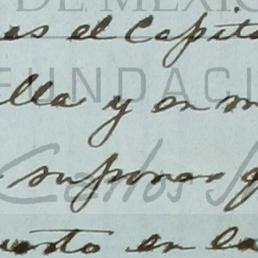 DE MEXIC
es el Capita
FUNDACI
lla y en m
Carlos S
supones q
uesto en la